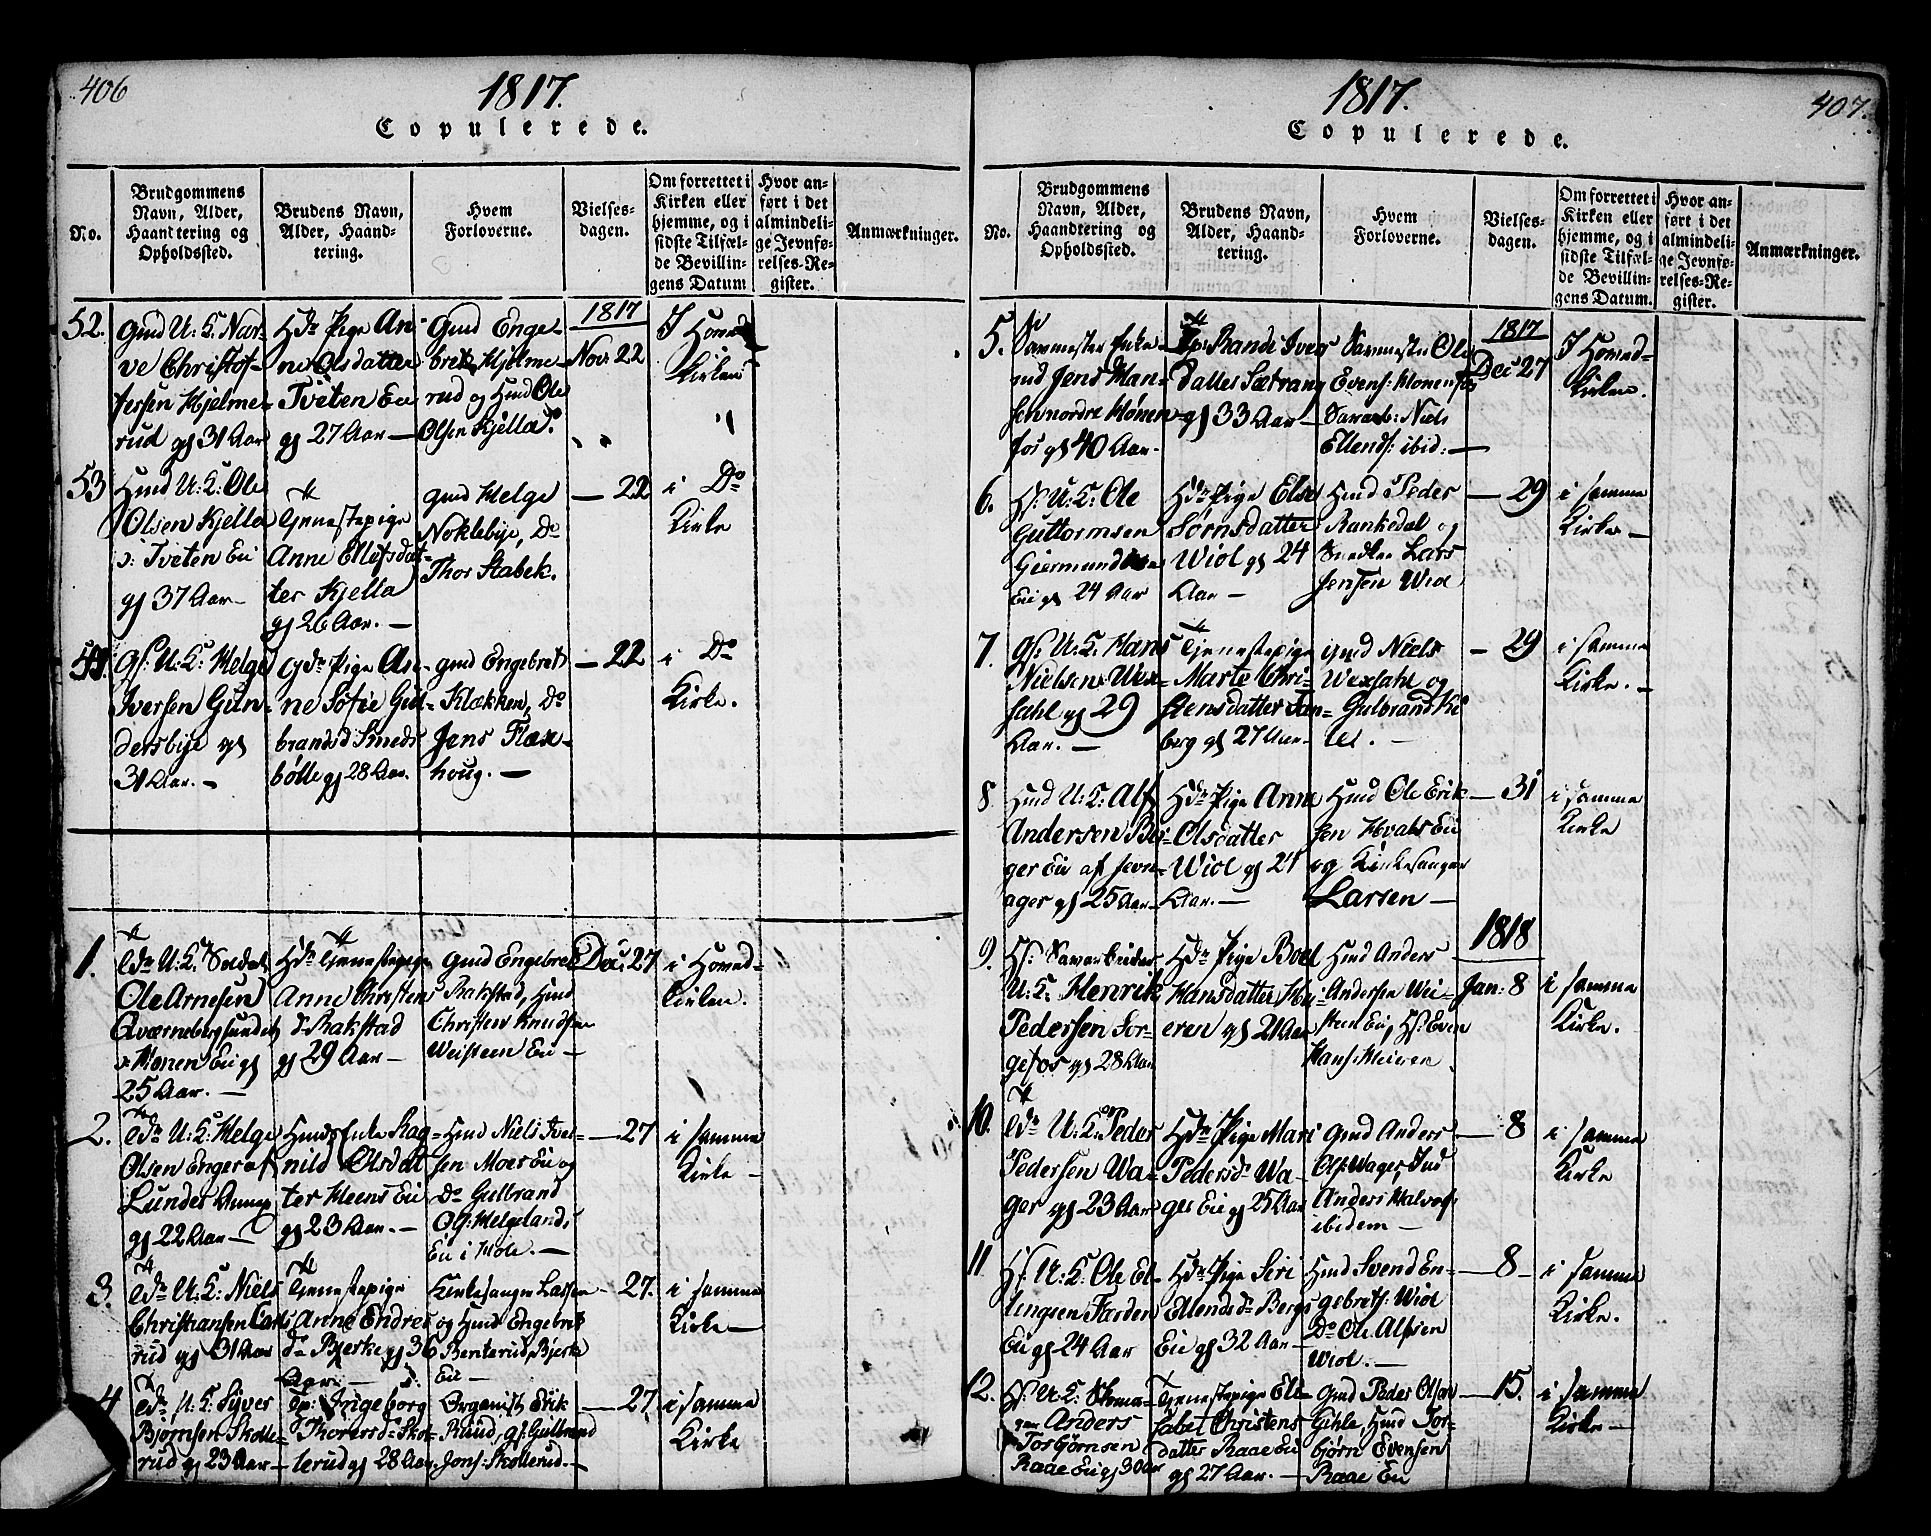 406
1817.
Copulerede.
No.
Brudgommens
Navn, Alder,
Haandtering og
Opholdssted.
Brudens Navn,
Alder, Haand-
tering.
Hvem
Forloverne.
Vielses-
dagen.
Om forrettet i
Kirken eller
hjemme, og i
sidste Tilfæl-
de Bevillin-
gens Datum
Hvor an-
ført i det
almindeli-
ge Jevnfø-
relses-Re-
gister.
Anmærkninger.
52.
Gmd U: K: Nar-
ve Christof-
fersen Hjelme-
rud gl 31 Aar
Hdr Pige An-
ne Olsdatter
Tveten Eie
gl 27 Aar —
Gmd Enge-
bret Hjelme
rud og Hmd Ole
Olsen Kjella
1817
Nov: 22
I Hovad
Kirken
53
Hmd U: K: Ole
Olsen Kjella
i: Tveten Ei
gl 37 Aar —
Tjenestepige
Anne Ellefsdat-
ter Kjella
gl 26 Aar. —
gmd Helge
Noklebye, Do
Thor Stabek.
— 22
i Do
Kirke
54.
Gs: U: K: Helge
Iversen Gun-
dersbye gl
31 Aar. —
Gdr Pige An-
ne Sofie Gul-
brandsd Smeds
bølle gl 28 Aar.
gmd Engebret
Klækken, Do
Jens Flax-
houg. —
— 22
i Do
Kirke.
1.
Edr U: K: Soldat
Ole Arnesen
Qværnebergsundet
i Honen Ei gl
25 Aar. —
Hdr Tjenestepige
Anne Christens
dr Bakstad
gl 29 Aar —
Gmd Engebret
Bakstad, Hmd
Christen Knudsen
Weisteen Ei —
Dec: 27
i Hovad-
kirken.
2.
Edr U: K: Helge
Olsen Enger af
Lunder
gl 22 Aar —
Hmds Enke Rag-
nild Olsdat
ter Heens Ei
gl 23 Aar. —
Hmd Niels Iver-
sen Moes Ei og
Do Gulbrand
Ols: Helgelands
Ei i Hole. —
— 27
i samme
Kirke —
3.
Edr U: K: Niels
Christiansen Carls
rud gl 31 Aar
Tjenestepige
Anne Endres
dr Bjerke gl 36
Aar. —
Kirkesanger Lassen
og Hmd Engebret
Benterud, Bjerke
Ei —
— 27.
i samme
Kirke —
4
Edr U: K: Syver
Bjørnsen Skolle-
rud gl 23 Aar —
Tp: Ingeborg
Thoresdr Skol-
lerud gl 28 Aar.
Organist Erik
Ruud, gs: Gulbrand
Jons: Skollerud. —
— 27.
i samme
Kirke
407.
1817.
Copulerede.
No.
Brudgommens
Navn, Alder,
Haandtering og
Opholdssted.
Brudens Navn,
Alder, Haand-
tering.
Hvem
Forloverne.
Vielses-
dagen.
Om forrettet i
Kirken eller
hjemme, og i
sidste Tilfæl-
de Bevillin-
gens Datum.
Hvor an-
ført i det
almindeli-
ge Jevnfø-
relses-Re-
gister.
Anmærkninger.
5.
Savmester Enke-
md Jens Han-
sen nordre Hønen-
fos gl 40 Aar.
Tp: Randi Ivers
datter Sætrang
gl 33 Aar —
Savmester Ole
Evens: Honenfos
Savarb: Niels
Ellends: ibid: —
1817
Dec 27
I Hovad-
kirken.
6.
Hs: U: K: Ole
Guttormsen
Giermund
Ei gl 24 Aar
Hdr Pige Else
Sørnsdatter
Wiol gl 24
Aar —
Hmd Peder
Rankedal og
Snedker Lars
Jensen Wiol
— 29
i samme
Kirke —
7.
Gs: U: K: Hans
Nielsen Wex-
sahl gl 29
Aar. —
Tjenestepige
Marte Chri-
stensdatter Tan-
berg gl 27 Aar.
gmd Niels
Wexsahl og
Gulbrand Ki
lel. —
— 29
i samme
Kirke. —
8
Hmd U: K: Alf
Andersen Ber-
ger Ei af Jevn-
ager gl 25 Aar —
Hdr Pige Anne
Olsdatter
Wiol gl 24
Aar. —
Hmd Ole Erik-
sen Hvals Ei
og Kirkesanger
Larsen —
— 31
i samme
Kirke
9.
Hs: Savarbeider
U: K: Henrik
Pedersen Sor-
gefos gl 28 Aar
Hdr Pige Boel
Hansdatter Hv-
eren gl 21 Aar
Hmd Anders
Andersen Wei-
steen Ei, Hs: Even
Hans: Hveren
1818
Jan: 8
i samme
Kirke.
10.
Edr U: K: Peder
Pedersen Wa-
ger gl 23 Aar
Hdr Pige Mari
Pedersdr Wa-
ger Ei gl 25 Aar
Gmd Anders
Ols: Wager, Ind
Anders Halvors
ibidem —
— 8
i samme
Kirke
11
Hs: U: K: Ole El-
lingsen Farden
Ei gl 24 Aar
Hdr Pige Siri
Ellendsdr Bergs
Ei gl 32 Aar —
Hmd Svend En-
gebrets: Wiol
Do Ole Alfsen
Wiol. —
— 8 —
i samme
Kirke.
12.
Hs: U: K: Skoma-
ger Anders
Torgjørnsen
Raae Ei gl 30 Aar
Tjenestepige Eli-
sabet Christens
datter Raae Ei
gl 27 Aar. —
Gmd Peder Olsen
Gihle, Hmd Tor-
bjørn Evensen
Raae Ei
— 15.
i samme
Kirke —